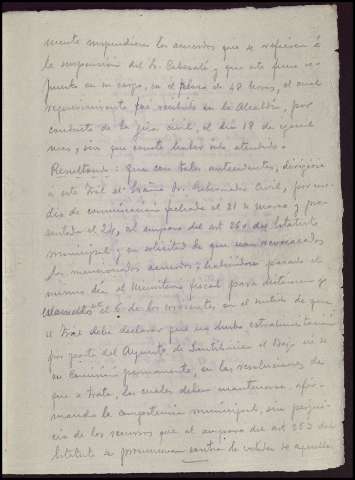 mente suspendiera los acuerdos que se refieren á
la suspensión del Sr. Caballé y que este fuese re-
puesto en su cargo, en el plazo de 48 horas, el cual
requerimiento fué recibido en la Alcaldía, por
conducto de la Gdia civil, el día 18 de igual
mes, sin que conste haber sido atendido =
Resultando: que con tales antecedentes, dirigióse
a este Tral el Excmo Sr. Gobernador Civil, por me-
dio de comunicación fechada el 21 de marzo y pre-
sentada el 24, al amparo del art 260 del Estatuto
municipal y en solicitud de que sean revocados
los mencionados acuerdos; habiéndose pasado el
mismo día al Ministerio fiscal para dictamen y
el 6 de los corrientes, en el sentido de que
el Tral debe declarar que no hubo extralimitación
por parte del Ayunto de Santibáñez el Bajo ni de
su Comisión permanente, en las resoluciones de
que se trata, las cuales deben mantenerse, afir-
mando la competencia municipal, sin perjui-
cio de los recursos que al amparo del art 253 del
Estatuto se promuevan contra la validez de aquellas